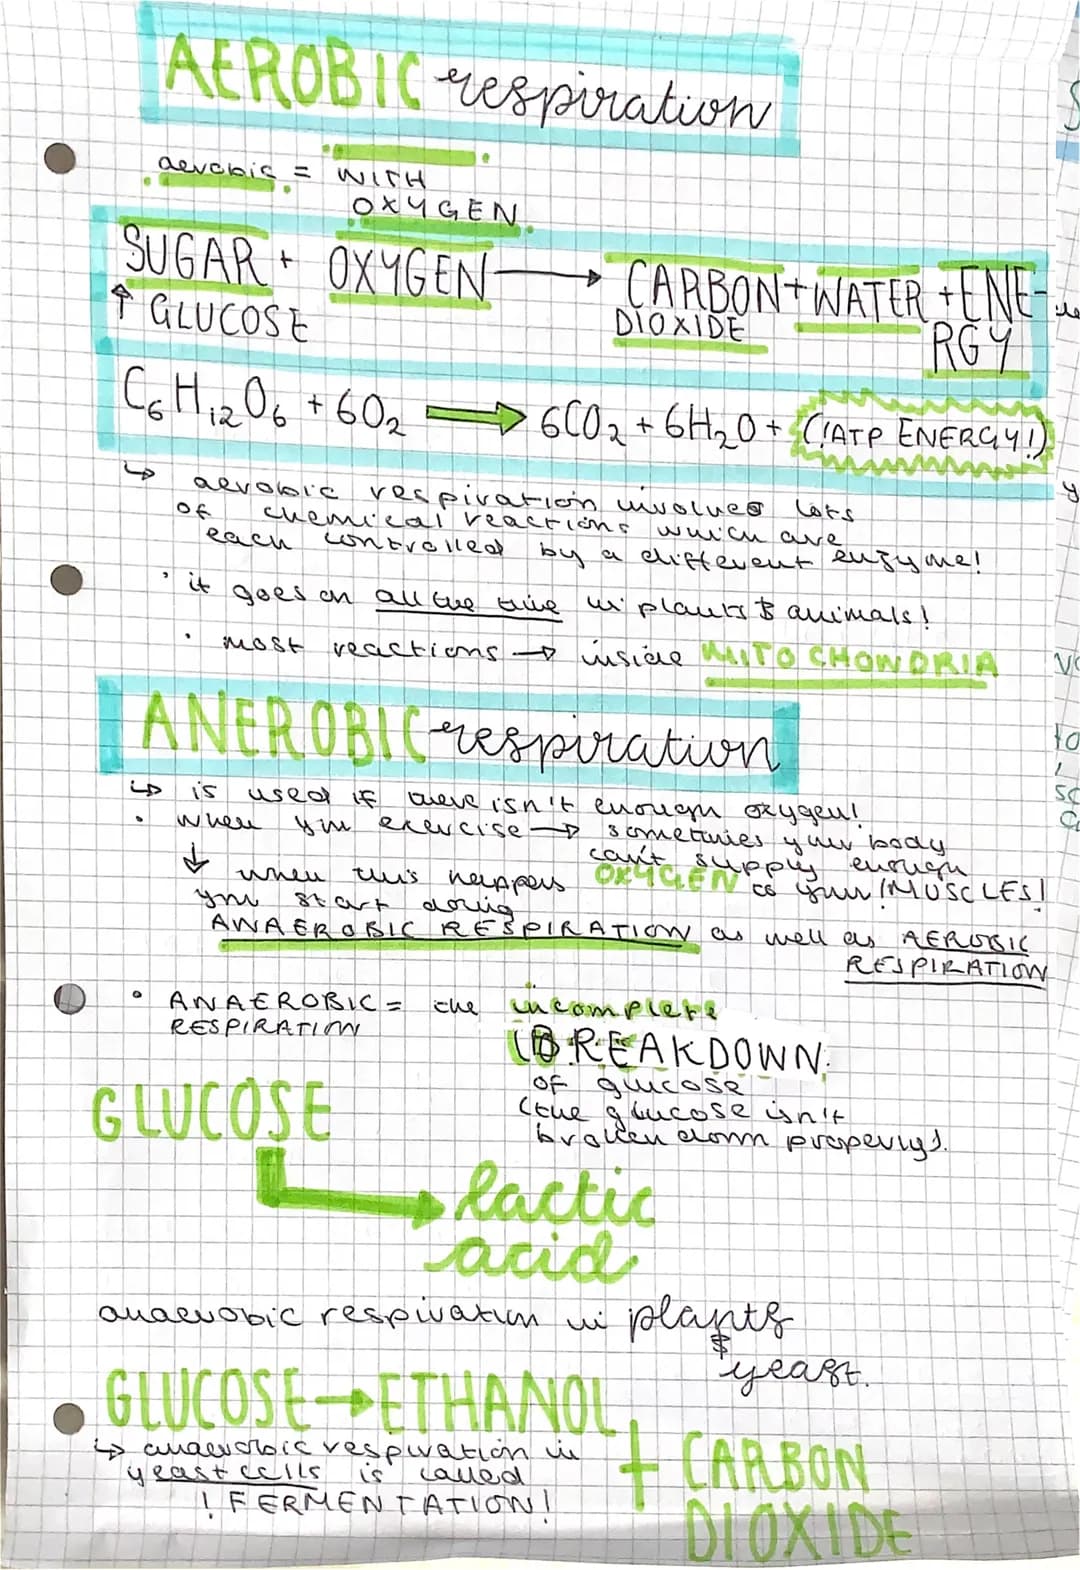 AEROBIC respiration
aerobic = WITH
OXYGEN.
SUGAR + OXYGEN → CARBON + WATER + ENE-
↑ GLUCOSE DIOXIDE RGY
C₆H₁₂O₆ + 6O₂ → 6CO₂ + 6H₂O + (!ATP ENERGY!)
↳ aerobic respiration involves lots
of chemical reactions which are
each controlled by a different enzyme!
• it goes on all the time in plants & animals!
• most reactions → inside MITOCHONDRIA
ANEROBIC respiration
↳ is used if there isn't enough oxygen!
• when you exercise → sometimes your body
can't supply enough
↓ when this happens OXYGEN to your !MUSCLES!
you start doing
ANAEROBIC RESPIRATION as well as AEROBIC
RESPIRATION
• ANAEROBIC = the incomplete
RESPIRATION
BREAKDOWN.
of glucose
GLUCOSE
(the glucose isn't
broken down properly).
lactic
acid
anaerobic respiration in plants
& yeast.
GLUCOSE → ETHANOL
+ CARBON
DIOXIDE
↳ anaerobic respiration in
yeast cells is called
! FERMENTATION!